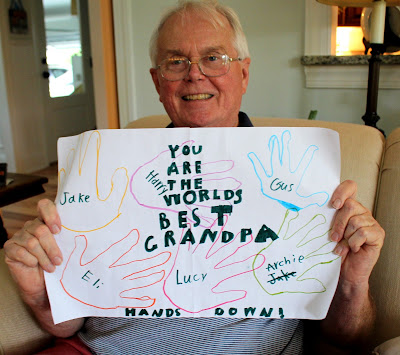 YOU
ARE
THE
WORLDS
BEST
GRANDPA
Jake
Harris
Gus
Eli
Lucy
Archie
Jake
HANDS DOWN!